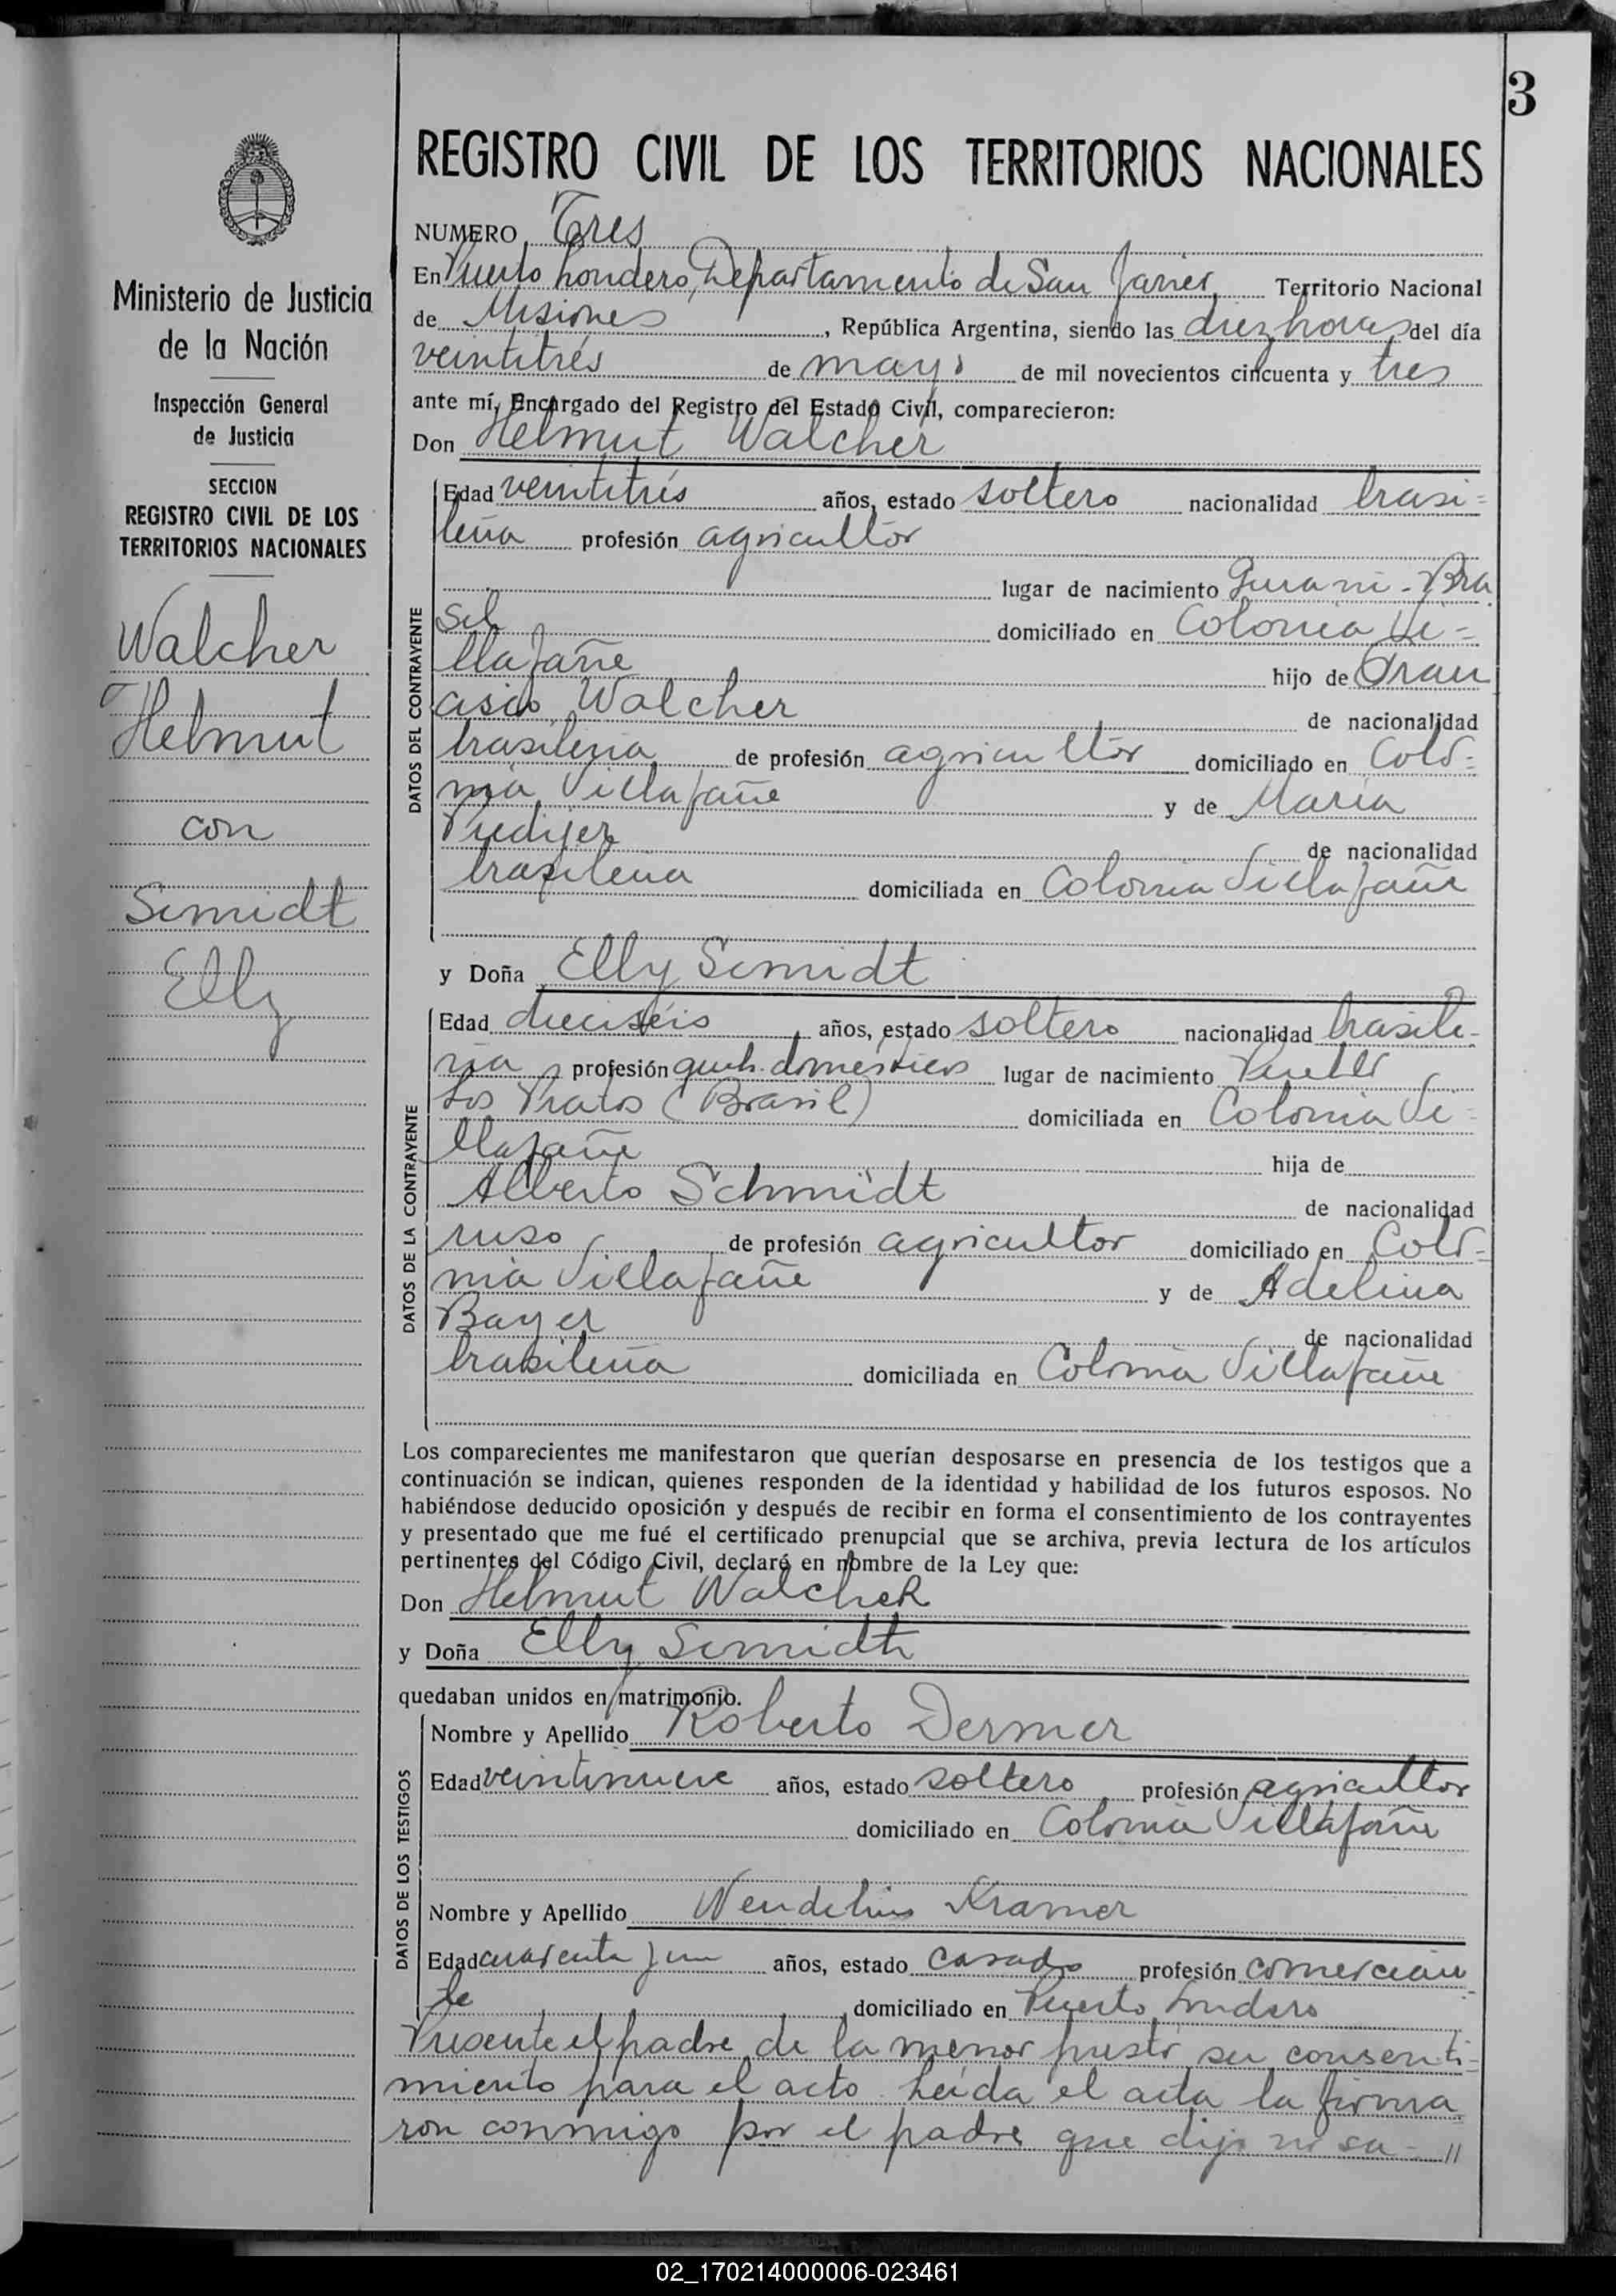 3
REGISTRO CIVIL DE LOS TERRITORIOS NACIONALES
Ministerio de Justicia
de la Nación
Inspección General
de Justicia
SECCION
REGISTRO CIVIL DE LOS
TERRITORIOS NACIONALES
Walcher
Helmut
con
Semidt
Elly
NUMERO Tres
En Puerto Londero, Departamento de San Javier Territorio Nacional
de Misiones, República Argentina, siendo las diez horas del día
veintitrés de mayo de mil novecientos cincuenta y tres
ante mí, Encargado del Registro del Estado Civil, comparecieron:
Don Helmut Walcher
DATOS DEL CONTRAYENTE
Edad veintitrés años, estado soltero nacionalidad brasi=
leña profesión agricultor
lugar de nacimiento Guarani - Bra
sil domiciliado en Colonia Vi=
llafañe hijo de
Walcher de nacionalidad
brasileña de profesión agricultor domiciliado en Colo=
nia Villafañe y de María
de nacionalidad
brasileña domiciliada en Colonia Villafañe
y Doña Elly Semidt
DATOS DE LA CONTRAYENTE
Edad dieciséis años, estado soltero nacionalidad brasile-
ña profesión queh. domésticos lugar de nacimiento
Los Pratos (Brasil) domiciliada en Colonia Vi=
llafañe hija de
Alberto Schmidt de nacionalidad
ruso de profesión agricultor domiciliado en Colo=
nia Villafañe y de Adelina
Bayer de nacionalidad
brasileña domiciliada en Colonia Villafañe
Los comparecientes me manifestaron que querían desposarse en presencia de los testigos que a
continuación se indican, quienes responden de la identidad y habilidad de los futuros esposos. No
habiéndose deducido oposición y después de recibir en forma el consentimiento de los contrayentes
y presentado que me fué el certificado prenupcial que se archiva, previa lectura de los artículos
pertinentes del Código Civil, declaré en nombre de la Ley que:
Don Helmut Walcher
y Doña Elly Semidt
quedaban unidos en matrimonio.
DATOS DE LOS TESTIGOS
Nombre y Apellido Roberto Dermer
Edad veintinueve años, estado soltero profesión agricultor
domiciliado en Colonia Villafañe
Nombre y Apellido Wendelin Kramer
Edad cuarenta y un años, estado casado profesión comercian
te domiciliado en Puerto Londero
Presente el padre de la menor prestó su consenti=
miento para el acto. Leída el acta la firma
ron conmigo por el padre que dijo no sa- //
02_170214000006-023461